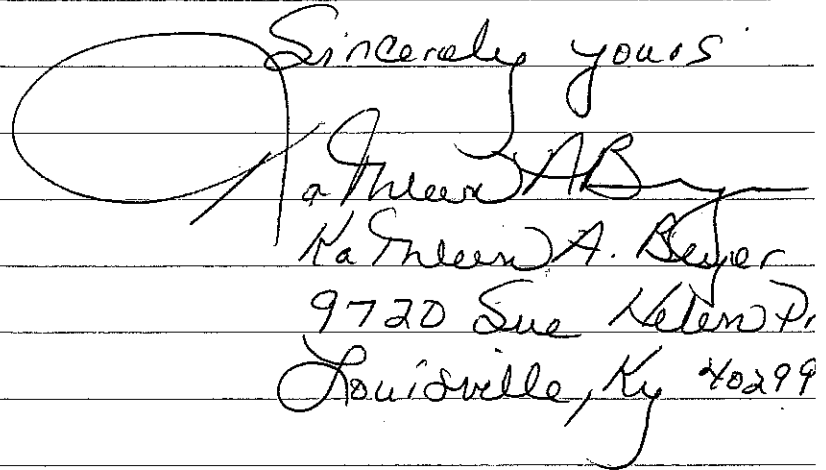 Sincerely yours
Kathleen A Beyer
Kathleen A. Beyer
9720 Sue Helen Dr
Louisville, Ky 40299